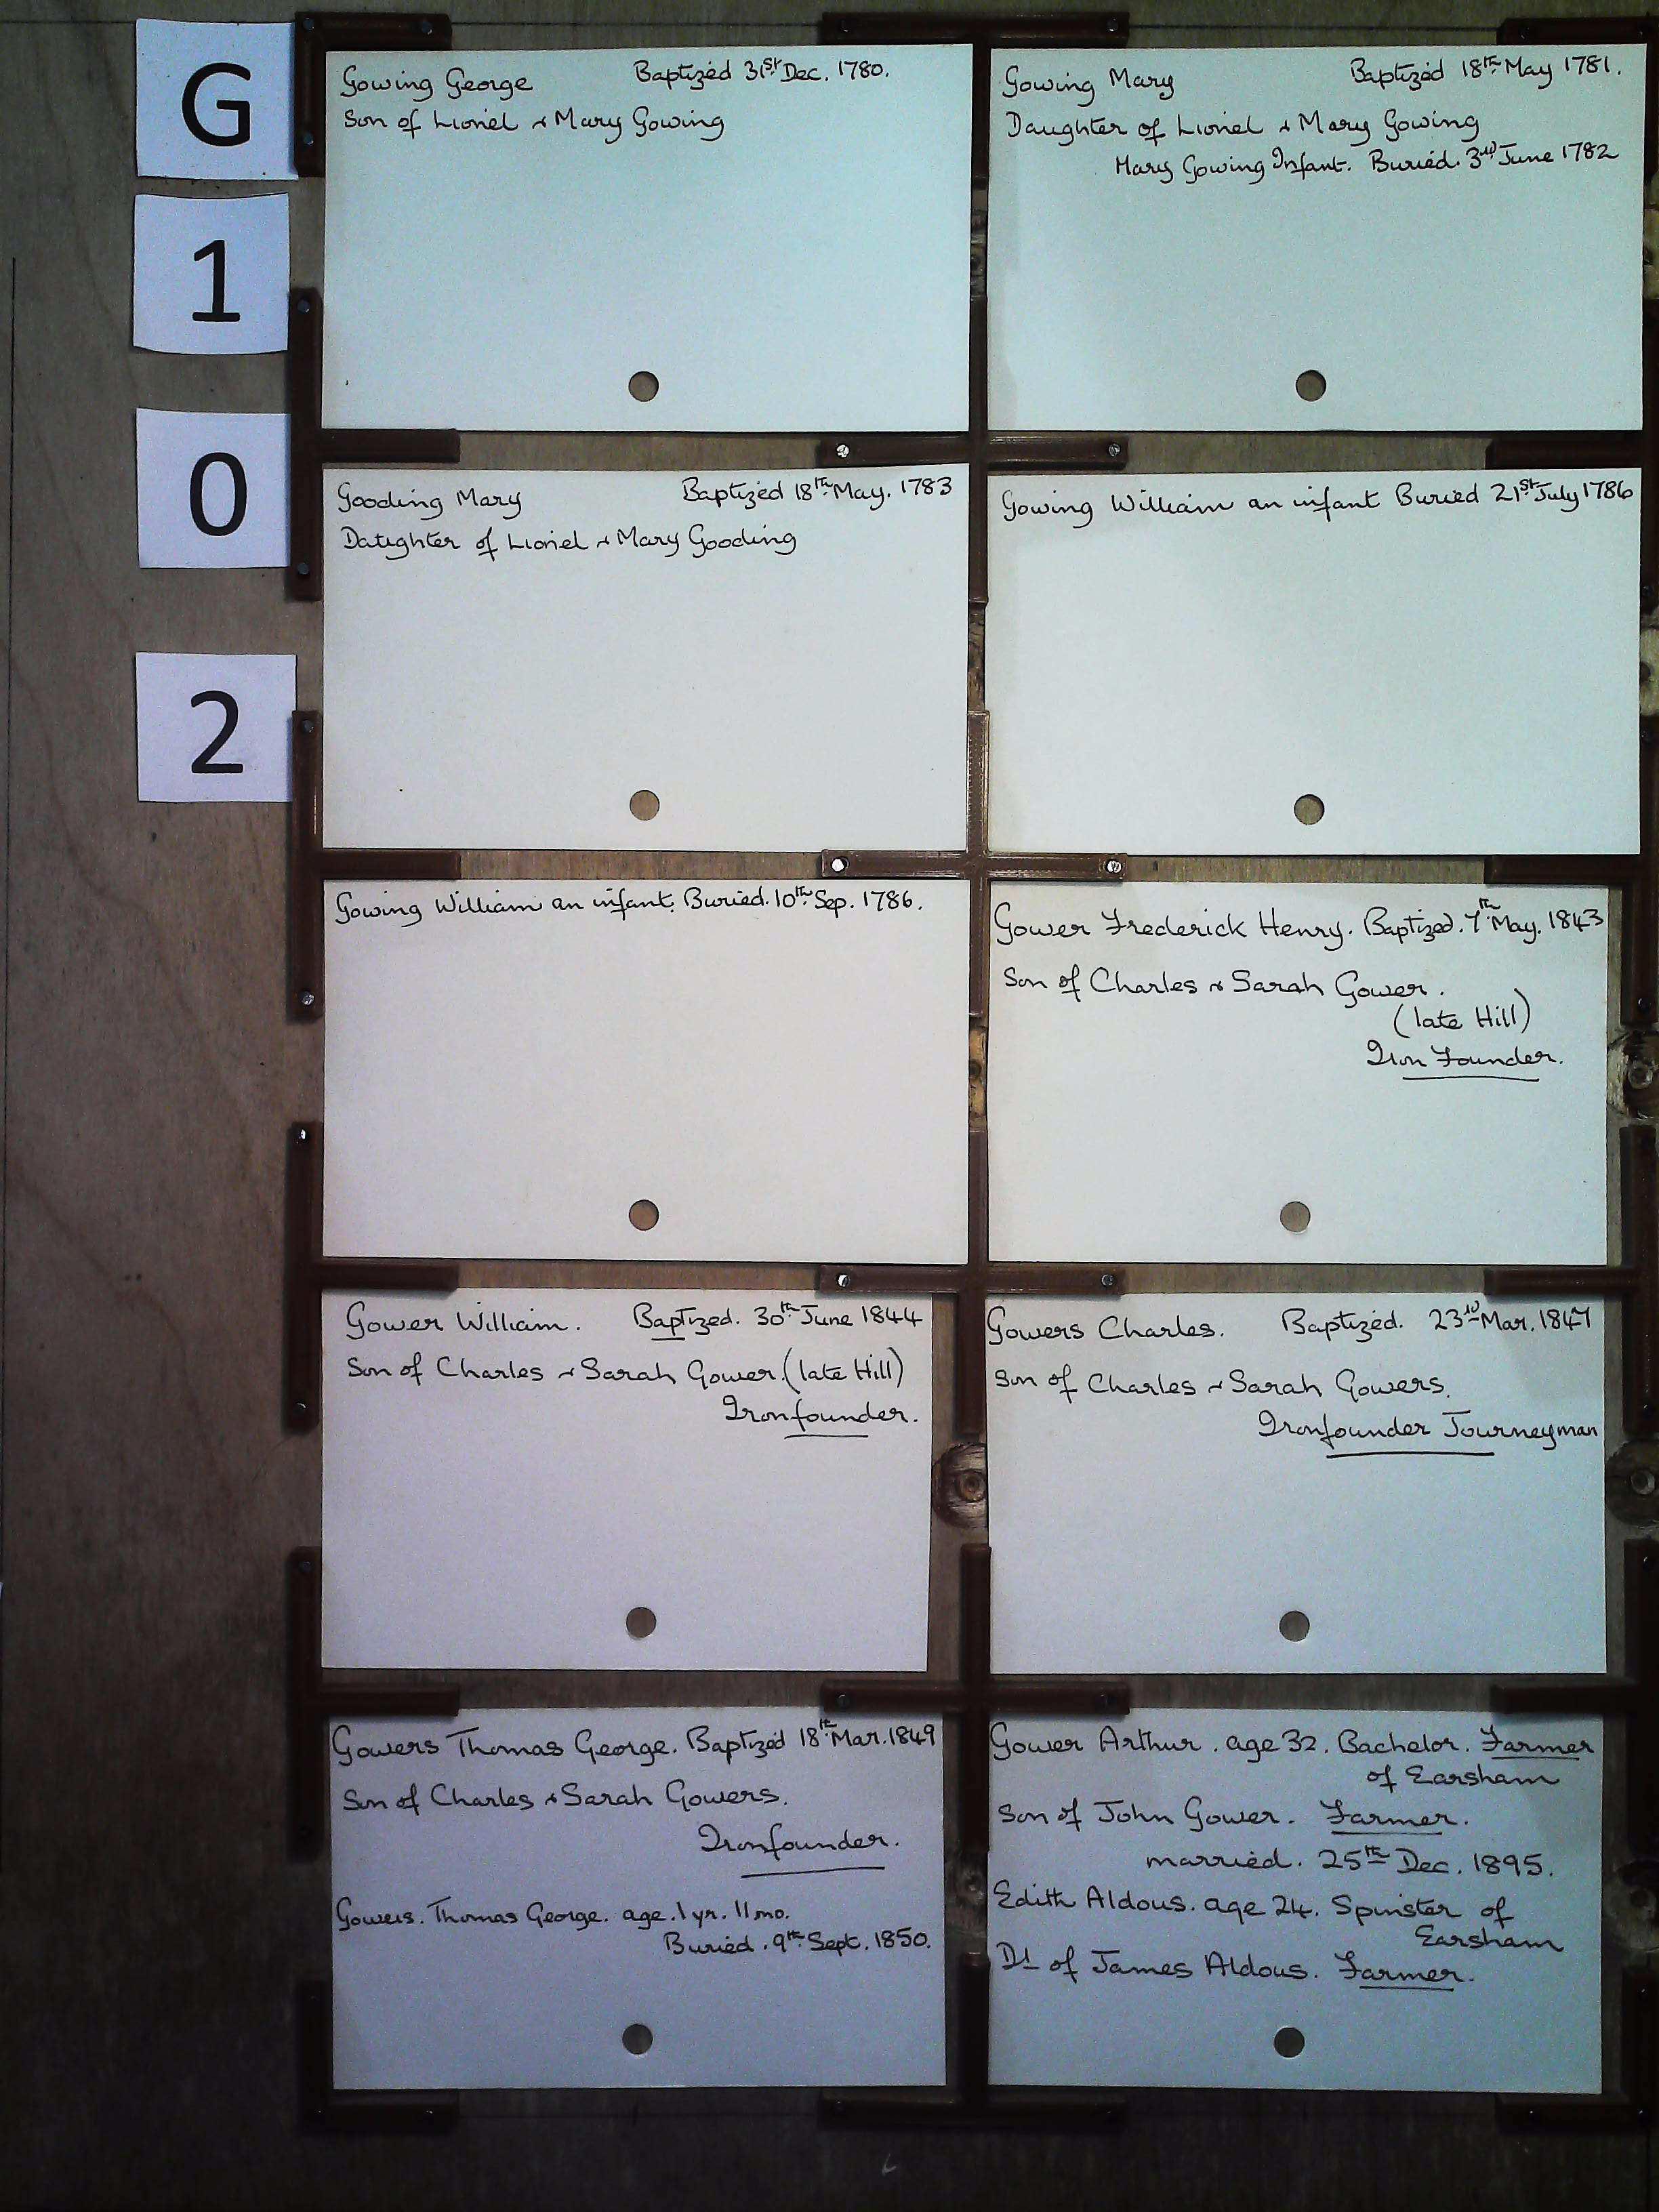 G
1
0
2
Gowing George Baptized 31st Dec. 1780.
Son of Lionel & Mary Gowing
Gowing Mary Baptized 18th May 1781.
Daughter of Lionel & Mary Gowing
Mary Gowing Infant. Buried. 3rd June 1782
Gooding Mary Baptized 18th May. 1783
Daughter of Lionel & Mary Gooding
Gowing William an infant Buried 21st July 1786
Gowing William an infant. Buried. 10th Sep. 1786.
Gower Frederick Henry. Baptized. 7th May. 1843
Son of Charles & Sarah Gower.
(late Hill)
Iron Founder.
Gower William. Baptized. 30th June 1844
Son of Charles & Sarah Gower. (late Hill)
Ironfounder.
Gowers Charles. Baptized. 23rd Mar. 1847
Son of Charles & Sarah Gowers.
Ironfounder Journeyman
Gowers Thomas George. Baptized 18th Mar. 1849
Son of Charles & Sarah Gowers.
Ironfounder.
Gowers. Thomas George. age. 1 yr. 11 mo.
Buried. 9th Sept. 1850.
Gower Arthur. age 32. Bachelor. Farmer
of Earsham
Son of John Gower. Farmer.
married. 25th Dec. 1895.
Edith Aldous. age 24. Spinster of
Earsham
Dt of James Aldous. Farmer.